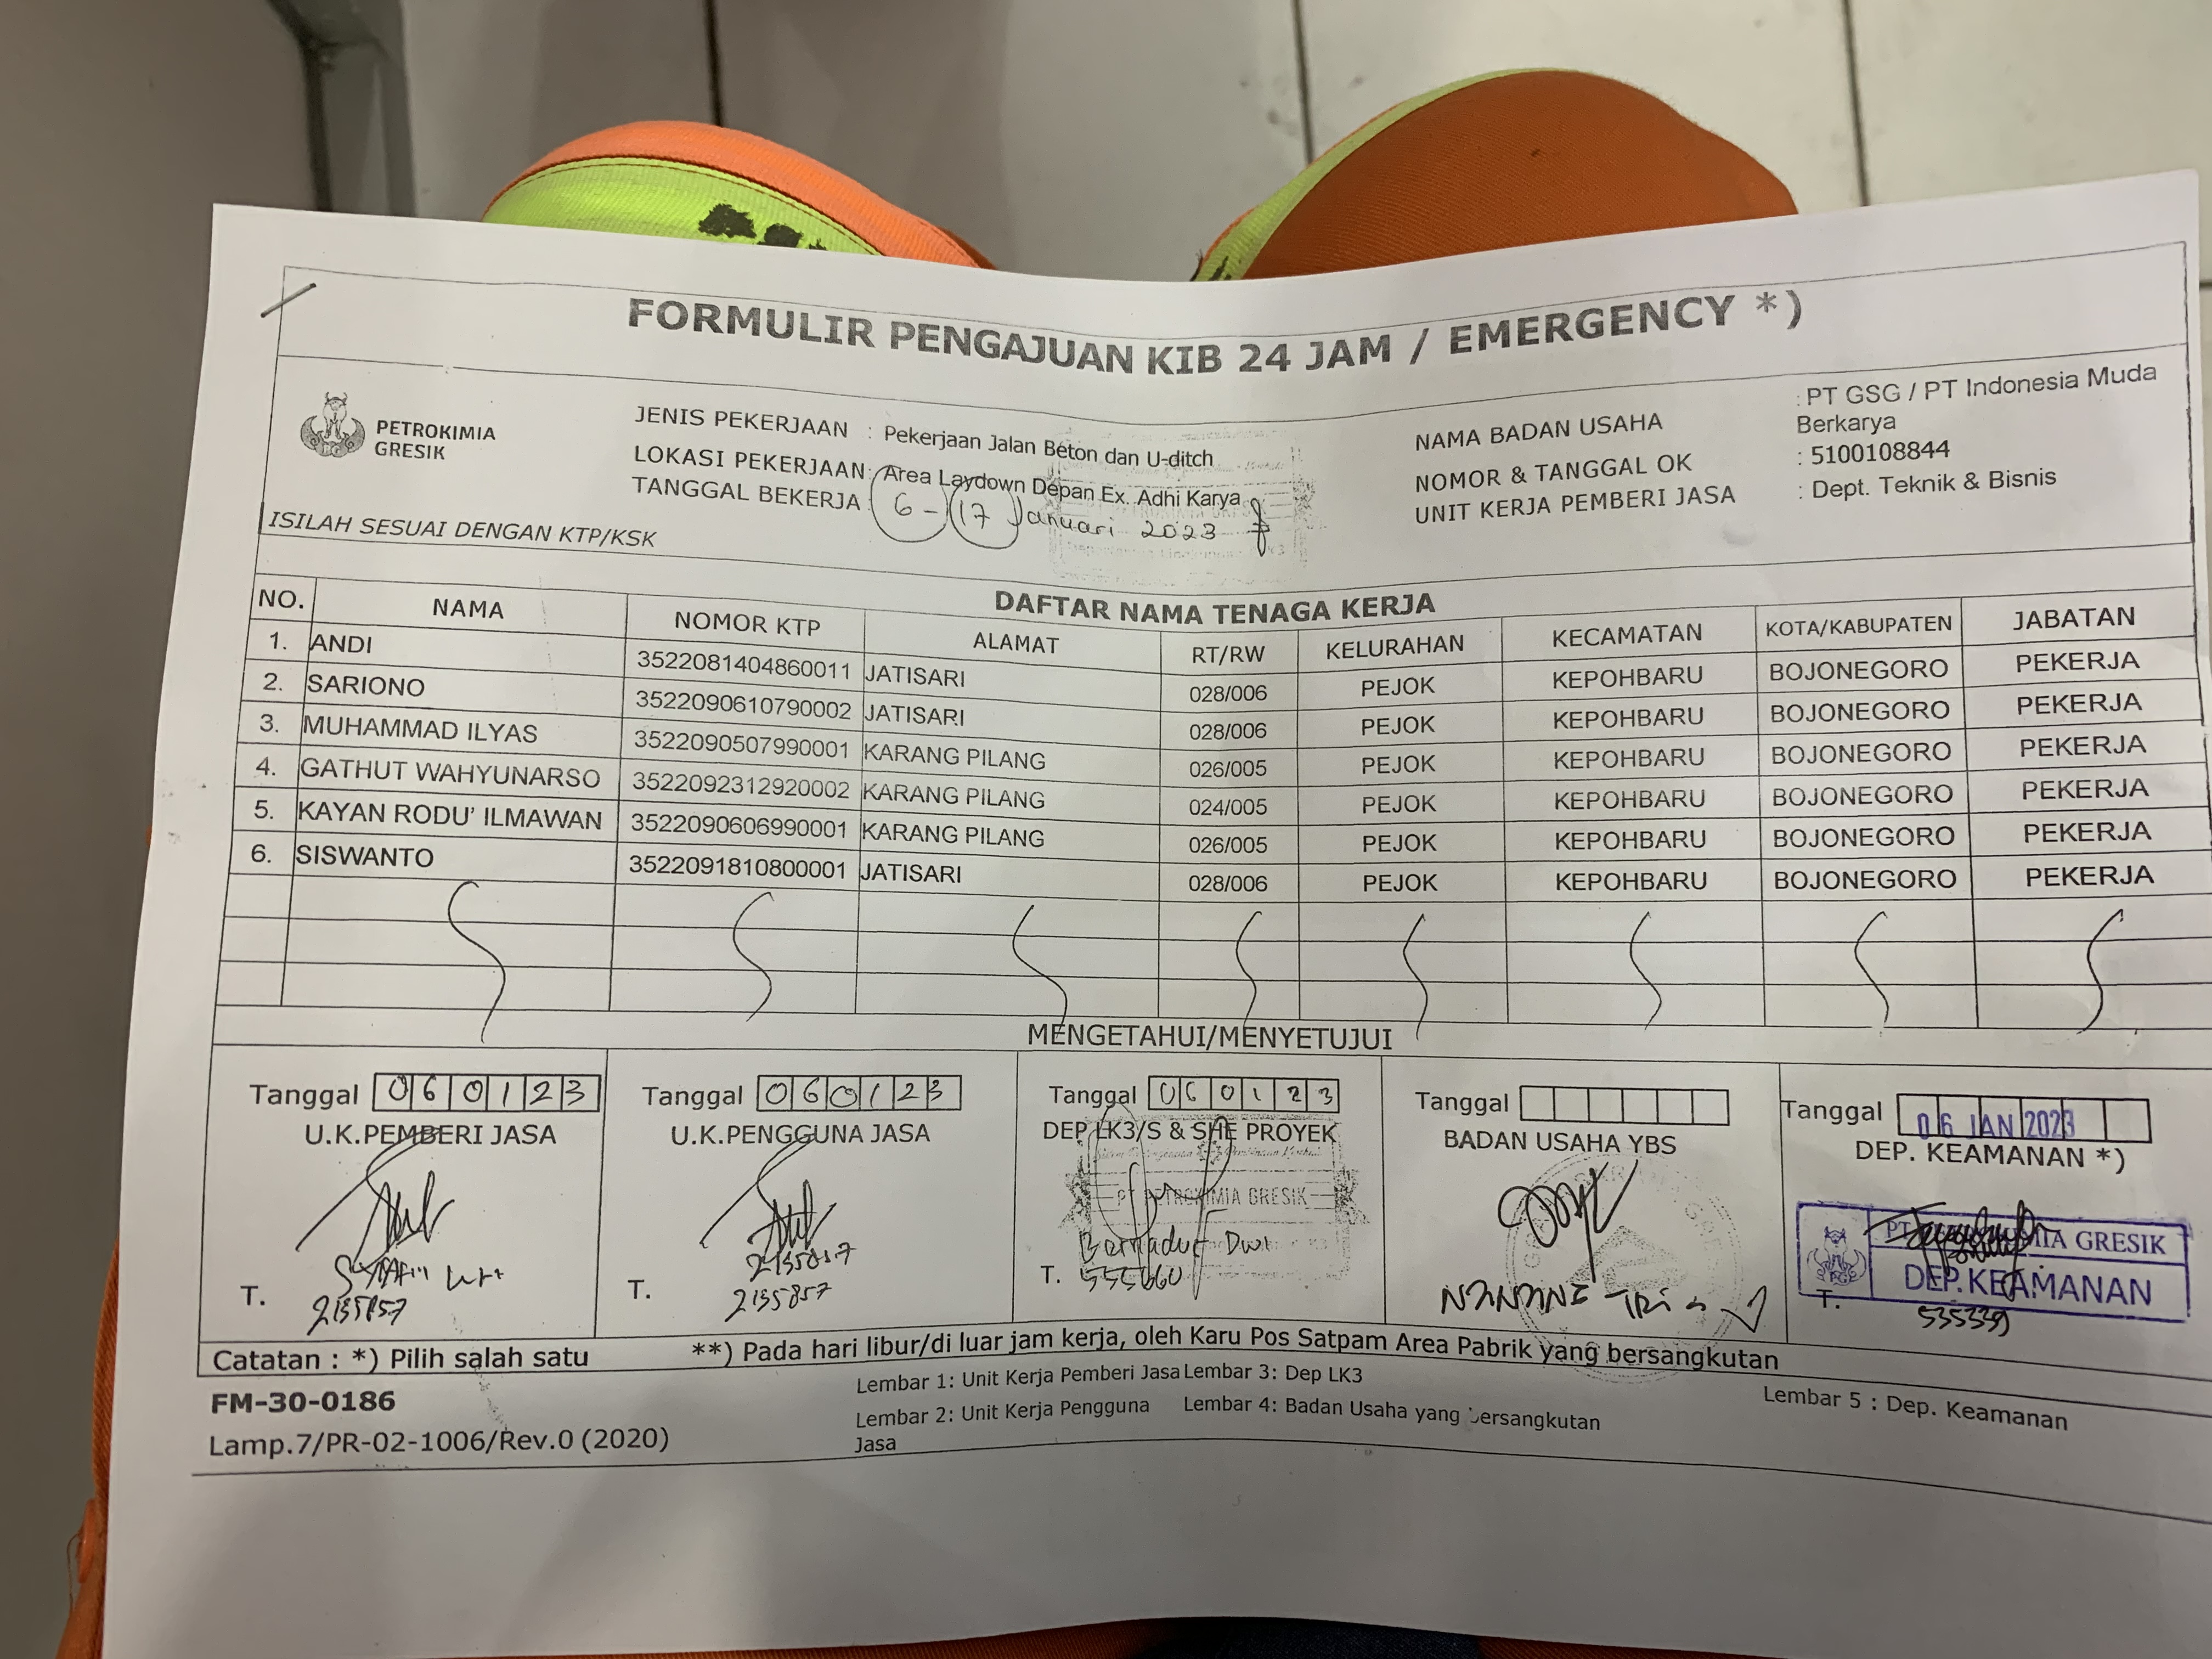 FORMULIR PENGAJUAN KIB 24 JAM / EMERGENCY *)
PETROKIMIA
GRESIK
JENIS PEKERJAAN : Pekerjaan Jalan Beton dan U-ditch
LOKASI PEKERJAAN: Area Laydown Depan Ex. Adhi Karya
TANGGAL BEKERJA : 6 - 17 Januari 2023
NAMA BADAN USAHA : PT GSG / PT Indonesia Muda
Berkarya
NOMOR & TANGGAL OK : 5100108844
UNIT KERJA PEMBERI JASA : Dept. Teknik & Bisnis
ISILAH SESUAI DENGAN KTP/KSK
DAFTAR NAMA TENAGA KERJA
NO. NAMA NOMOR KTP ALAMAT RT/RW KELURAHAN KECAMATAN KOTA/KABUPATEN JABATAN
1. ANDI 3522081404860011 JATISARI 028/006 PEJOK KEPOHBARU BOJONEGORO PEKERJA
2. SARIONO 3522090610790002 JATISARI 028/006 PEJOK KEPOHBARU BOJONEGORO PEKERJA
3. MUHAMMAD ILYAS 3522090507990001 KARANG PILANG 026/005 PEJOK KEPOHBARU BOJONEGORO PEKERJA
4. GATHUT WAHYUNARSO 3522092312920002 KARANG PILANG 024/005 PEJOK KEPOHBARU BOJONEGORO PEKERJA
5. KAYAN RODU' ILMAWAN 3522090606990001 KARANG PILANG 026/005 PEJOK KEPOHBARU BOJONEGORO PEKERJA
6. SISWANTO 3522091810800001 JATISARI 028/006 PEJOK KEPOHBARU BOJONEGORO PEKERJA
MENGETAHUI/MENYETUJUI
Tanggal 060123
U.K.PEMBERI JASA
T.
Tanggal 060123
U.K.PENGGUNA JASA
T. 2135857
Tanggal 060123
DEP LK3/S & SHE PROYEK
T.
Tanggal
BADAN USAHA YBS
NANANG TRI
Tanggal 06 JAN 2023
DEP. KEAMANAN *)
GRESIK
DEP.KEAMANAN
T.
Catatan : *) Pilih salah satu **) Pada hari libur/di luar jam kerja, oleh Karu Pos Satpam Area Pabrik yang bersangkutan
FM-30-0186
Lamp.7/PR-02-1006/Rev.0 (2020)
Lembar 1: Unit Kerja Pemberi Jasa Lembar 3: Dep LK3 Lembar 5 : Dep. Keamanan
Lembar 2: Unit Kerja Pengguna Lembar 4: Badan Usaha yang bersangkutan
Jasa